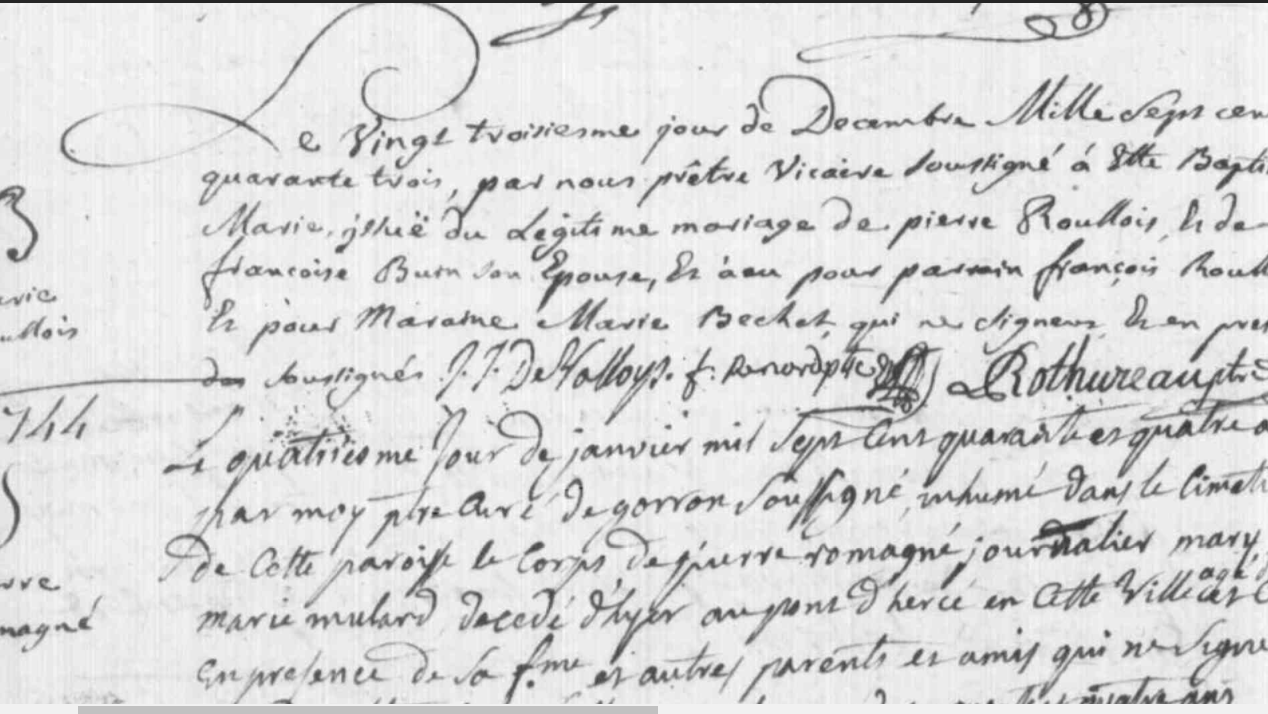 Le Vingt troisiesme jour de Decembre Mille Sept cen
quarante trois, par nous prêtre Vicaire soussigné à Etté Bapti
Marie, issuë du Légitime mariage de pierre Roullois, Et de
françoise Burn son Epouse, Et à eu pour parrain françois Roull
Et pour Maraine Marie Bechet qui ne signent Et en pres
des soussignés J. F. De Valloys. f. Renard ptre Rothureau ptre
744
Le quatriesme Jour de janvier mil Sept Cent quarante et quatre a
par moy ptre Curé de gorron Soussigné, inhumé dans le Cimeti
de Cette paroisse le Corps de pierre romagné journalier mary
marie mulard decedé d'hyer au pont d'hercé en Cette Ville agé
En presence de Sa fme et autres parents et amis qui ne Signe
quatre ans
arie
ullois
rre
magné